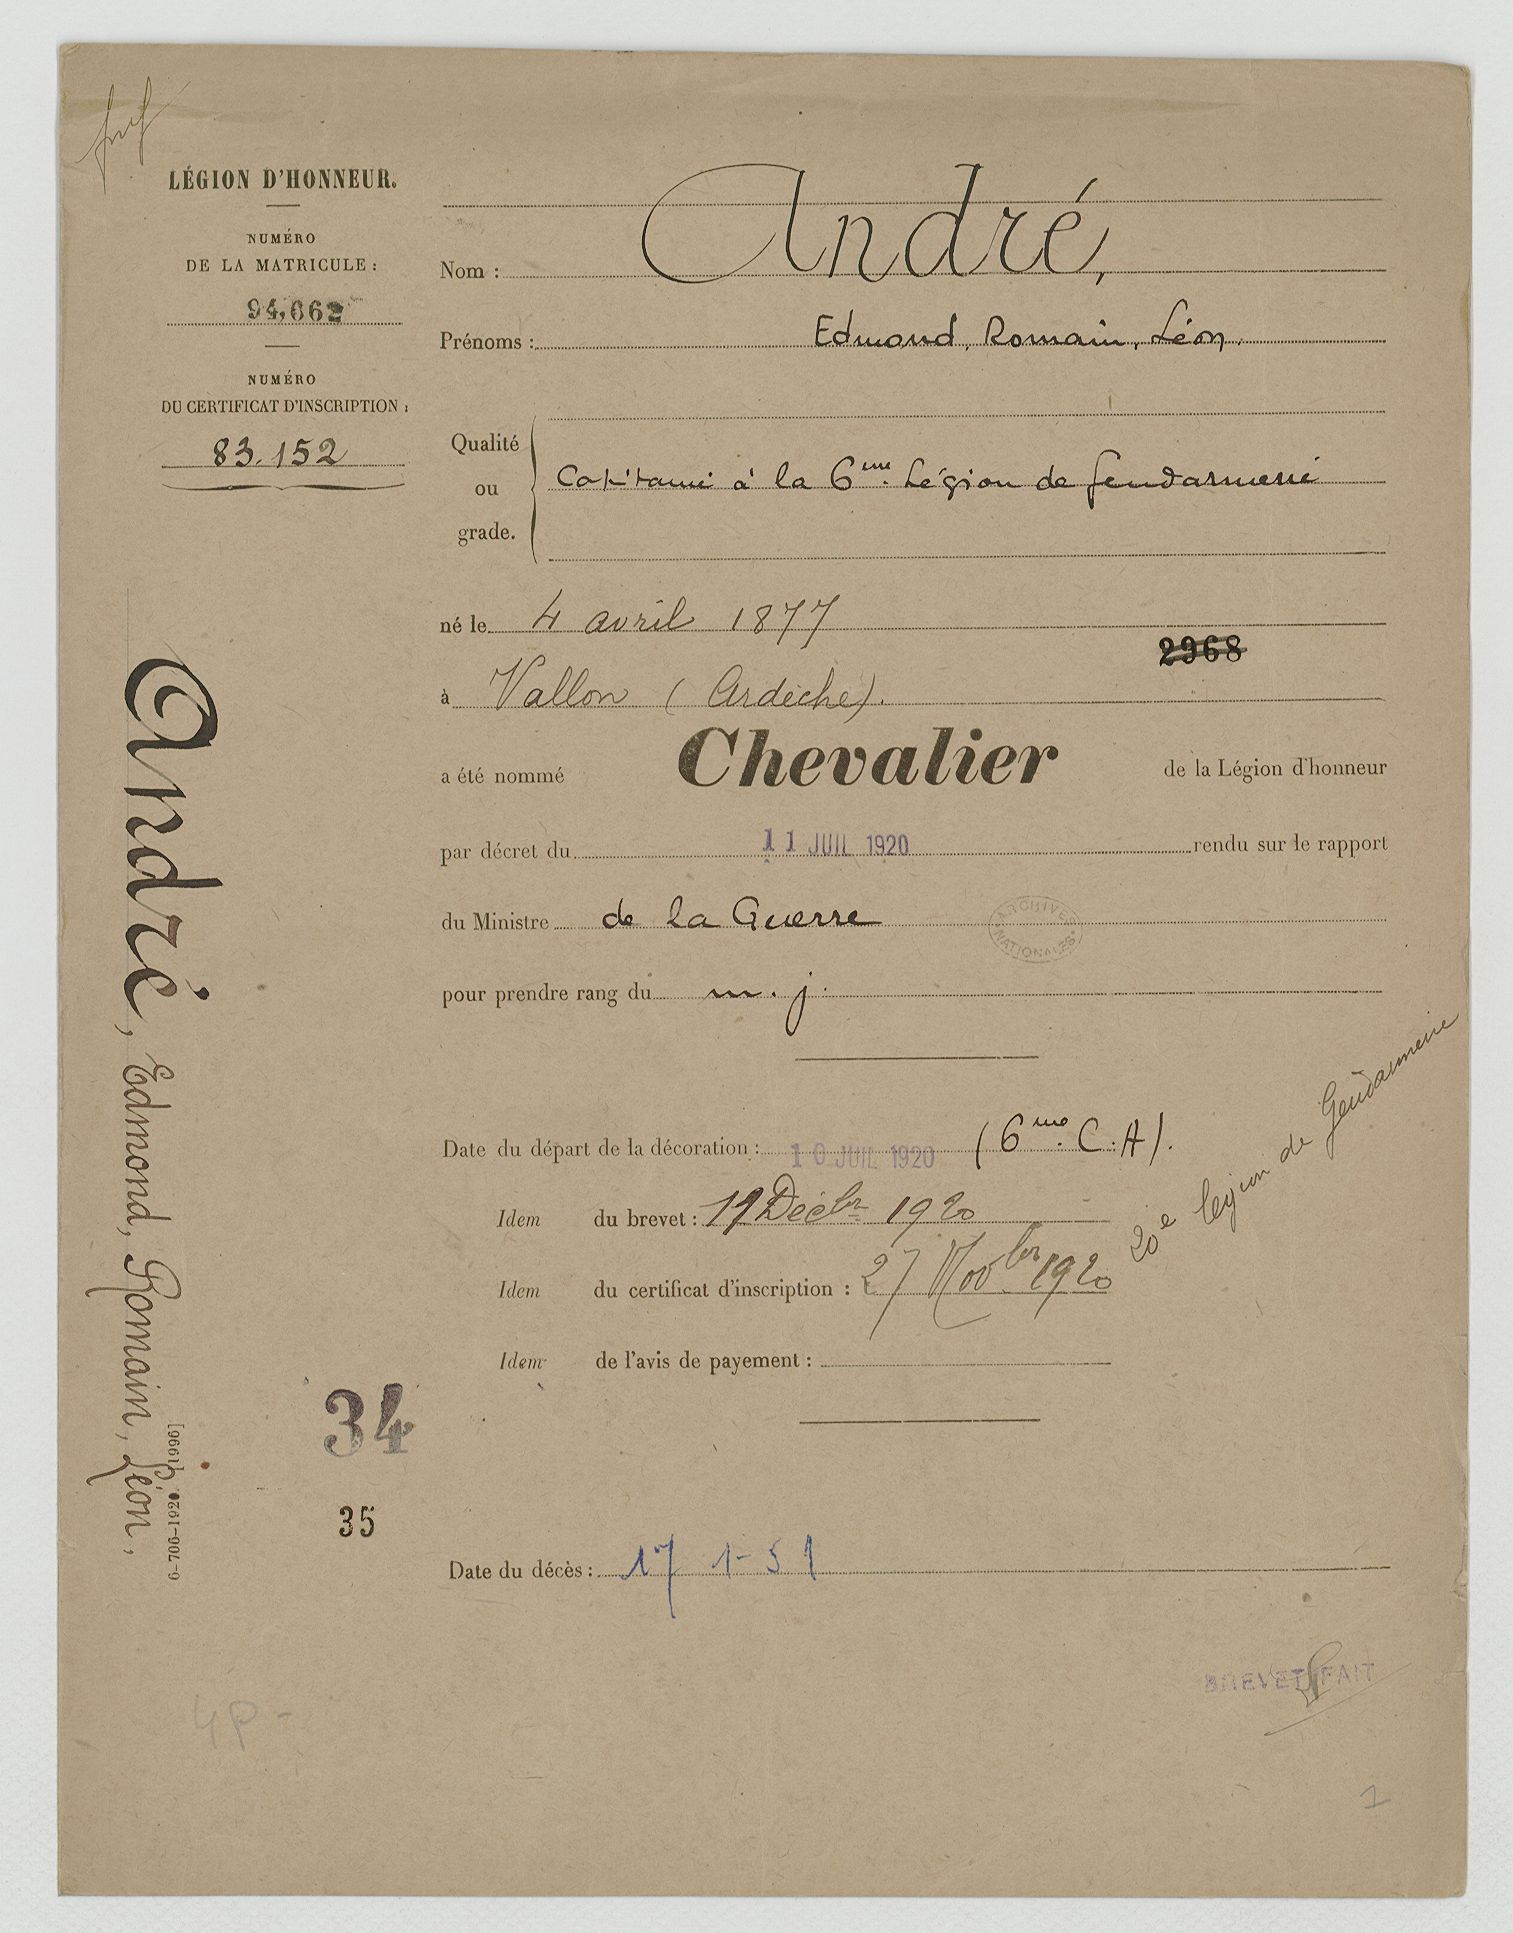 LÉGION D'HONNEUR.
NUMÉRO
DE LA MATRICULE :
94,662
NUMÉRO
DU CERTIFICAT D'INSCRIPTION :
83.152
Nom : André,
Prénoms : Edmond, Romain, Léon.
Qualité
ou
grade.
Capitaine à la 6eme Légion de Gendarmerie
né le 4 avril 1877
2968
à Vallon (Ardèche).
a été nommé Chevalier de la Légion d'honneur
par décret du 11 JUIL 1920 rendu sur le rapport
du Ministre de la Guerre
ARCHIVES NATIONALES
pour prendre rang du m. j.
Date du départ de la décoration : 10 JUIL 1920 (6me C.A).
Idem du brevet : 19 Décbr 1920
20e légion de Gendarmerie
Idem du certificat d'inscription : 27 Novbr 1920
Idem de l'avis de payement :
34
35
Date du décès : 17 1-51
BREVET FAIT
4P-
1
André, Edmond, Romain, Léon,
6-706-1920 [1996]